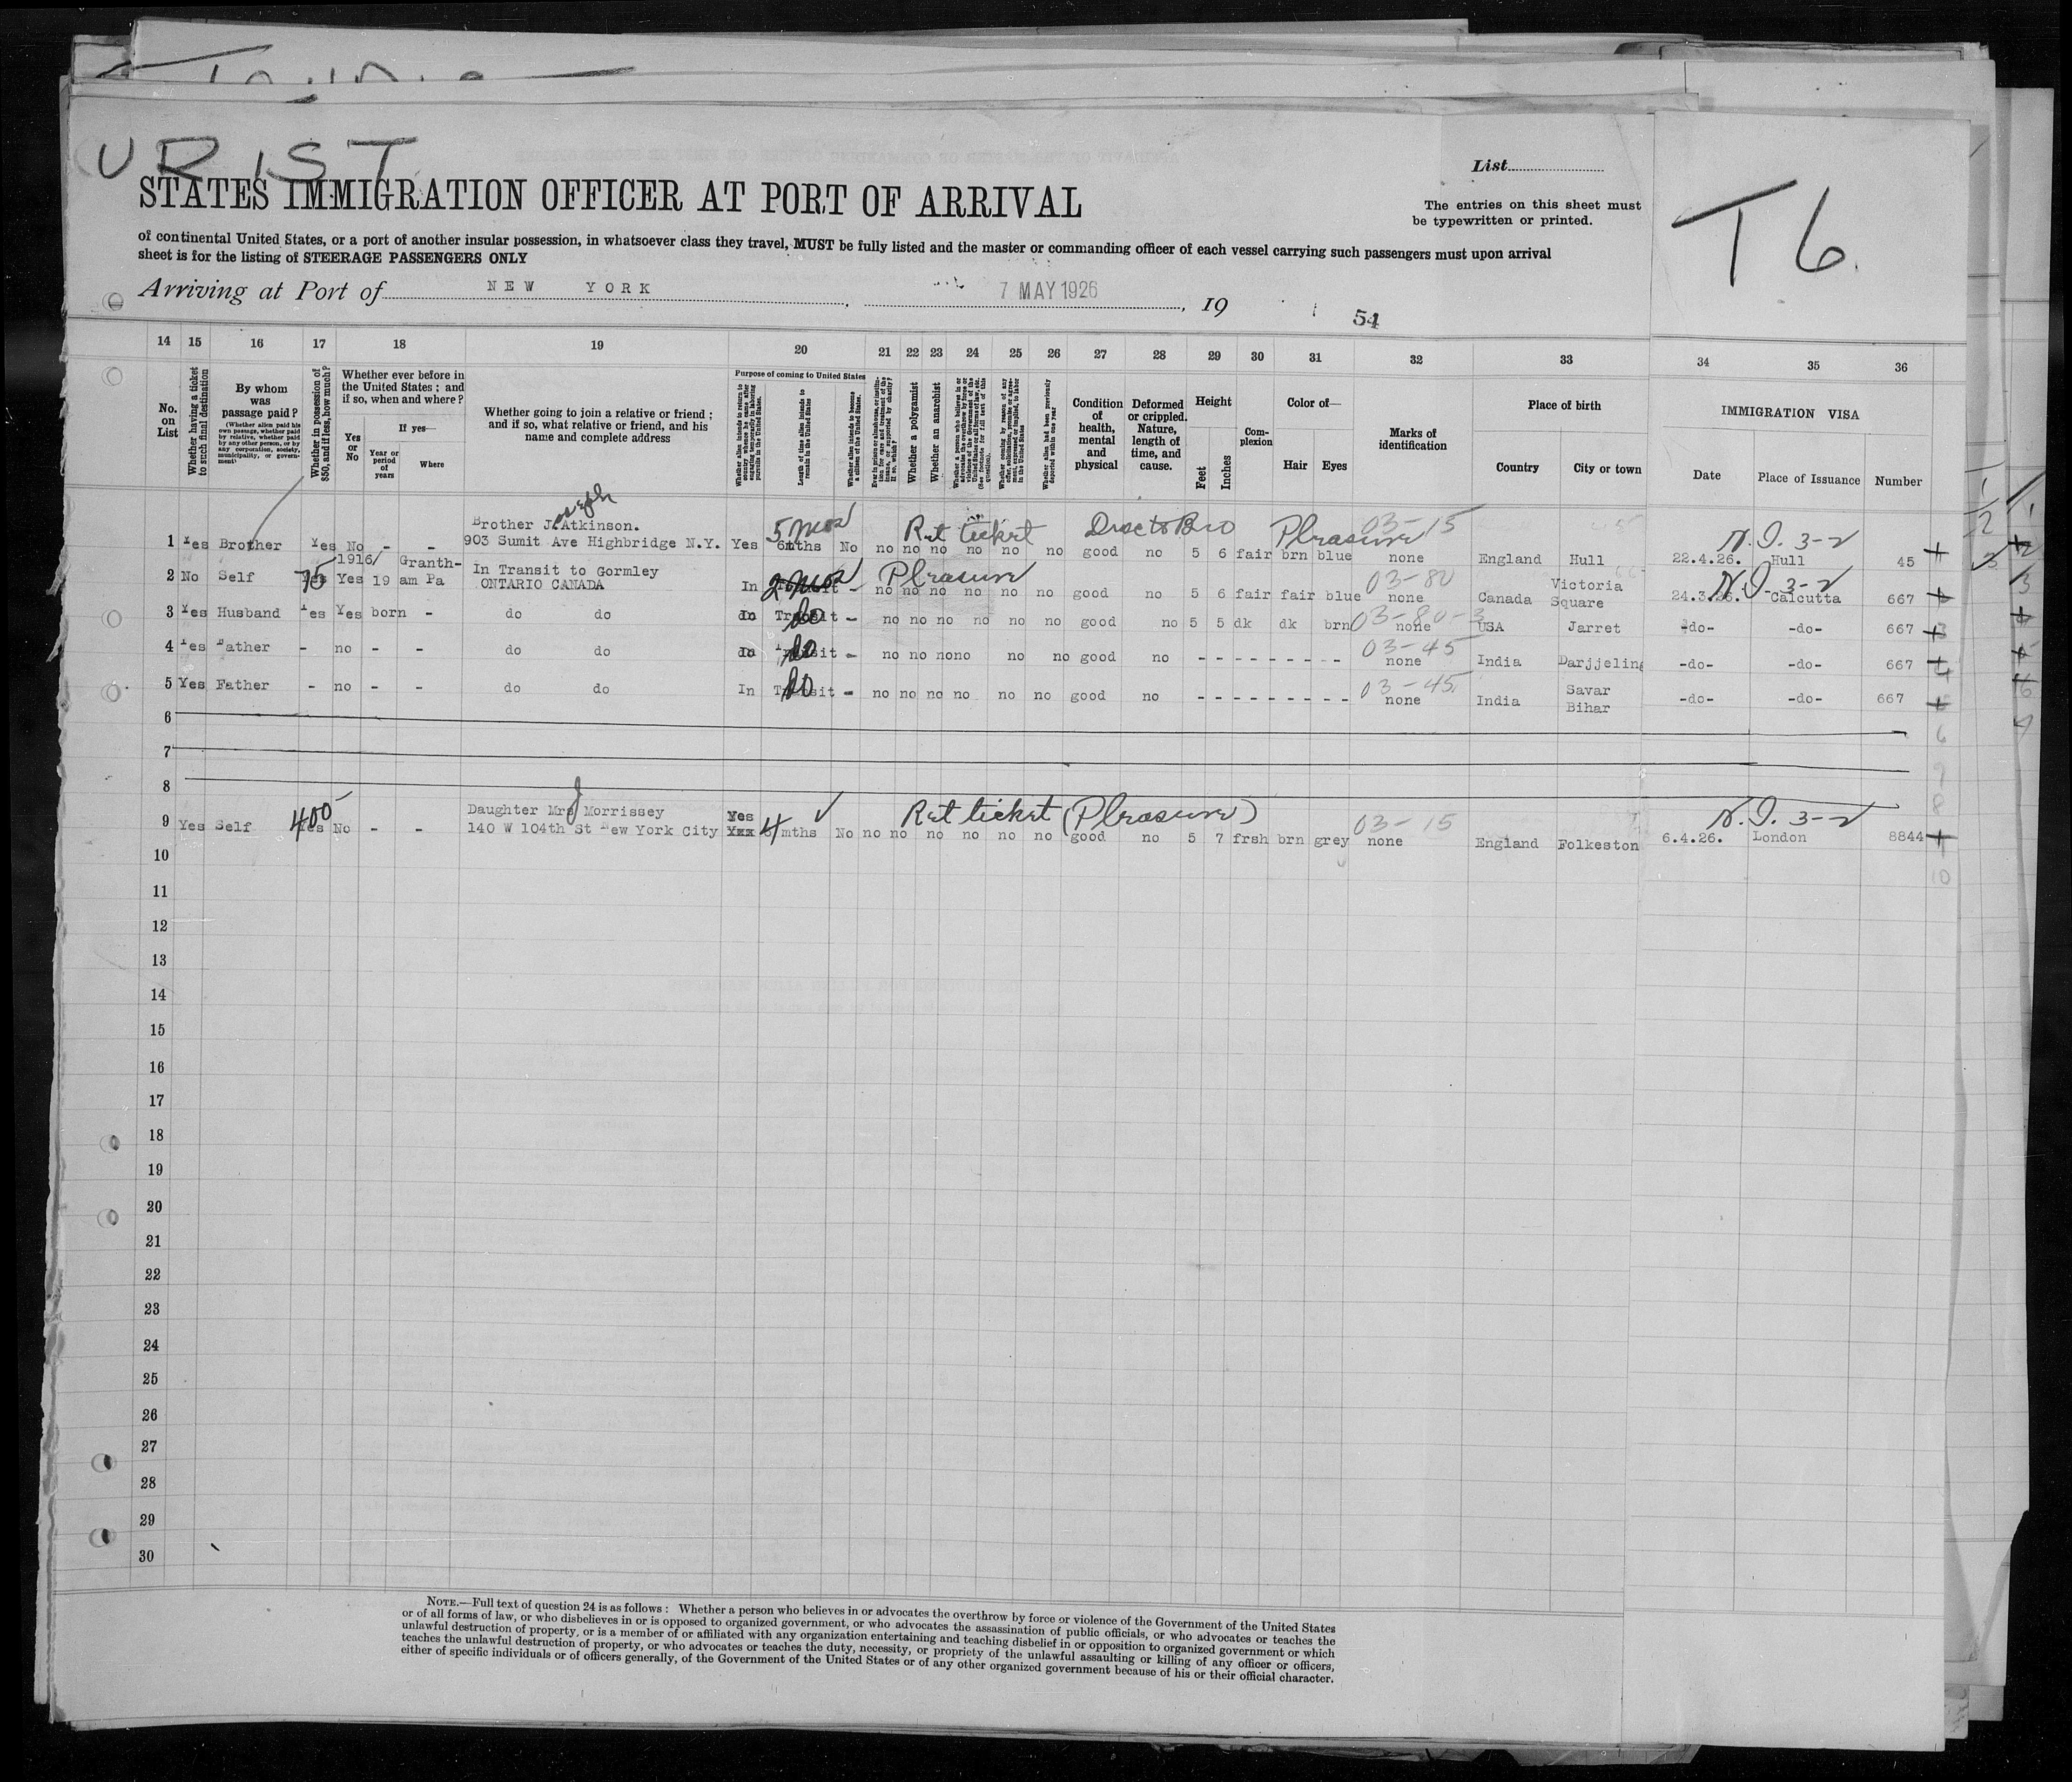 URIST
List
STATES IMMIGRATION OFFICER AT PORT OF ARRIVAL
The entries on this sheet must
be typewritten or printed.
T 6.
of continental United States, or a port of another insular possession, in whatsoever class they travel, MUST be fully listed and the master or commanding officer of each vessel carrying such passengers must upon arrival
sheet is for the listing of STEERAGE PASSENGERS ONLY
Arriving at Port of NEW YORK, 7 MAY 1926, 19
54
14 15 16 17 18 19 20 21 22 23 24 25 26 27 28 29 30 31 32 33 34 35 36
No. on List
Whether having a ticket to such final destination
By whom was passage paid?
(Whether alien paid his own passage, whether paid by relative, whether paid by any other person, or by any corporation, society, municipality, or government)
Whether in possession of $50, and if less, how much?
Whether ever before in the United States; and if so, when and where?
Yes or No
If yes—
Year or period of years
Where
Whether going to join a relative or friend; and if so, what relative or friend, and his name and complete address
Purpose of coming to United States
Whether alien intends to return to country whence he came after engaging temporarily in laboring pursuits in the United States.
Length of time alien intends to remain in the United States
Whether alien intends to become a citizen of the United States.
Whether a polygamist
Whether an anarchist
Whether alien had been previously deported within one year
Condition of health, mental and physical
Deformed or crippled. Nature, length of time, and cause.
Height
Feet
Inches
Complexion
Color of—
Hair
Eyes
Marks of identification
Place of birth
Country
City or town
IMMIGRATION VISA
Date
Place of Issuance
Number
Joseph
5 mos Ret ticket Pleasure 03-15 N.I. 3-2
Brother J. Atkinson.
1 Yes Brother Yes No - - 903 Sumit Ave Highbridge N.Y. Yes 6mths No no no no no no no good no 5 6 fair brn blue none England Hull 22.4.26. Hull 45
1916/ Granth-
75 In Transit to Gormley 2 mos Pleasure 03-80 Victoria N.I. 3-2
2 No Self Yes Yes 19 am Pa ONTARIO CANADA In Transit - no no no no no no good no 5 6 fair fair blue none Canada Square 24.3.26. Calcutta 667
3 Yes Husband Yes Yes born - do do In Transit do - no no no no no no good no 5 5 dk dk brn 03-80-3 none USA Jarret -do- -do- 667
4 Yes Father - no - - do do In Transit do - no no no no no no good no - - - - - - - - 03-45 none India Darjjeling -do- -do- 667
5 Yes Father - no - - do do In Transit do - no no no no no no good no - - - - - - - - 03-45 none India Savar Bihar -do- -do- 667
6
7
8
400 Daughter Mrs J Morrissey Yes Ret ticket (Pleasure) 03-15 N.I. 3-2
9 Yes Self Yes No - - 140 W 104th St New York City Yxx 4 mths No no no no no no no good no 5 7 frsh brn grey none England Folkeston 6.4.26. London 8844
10
11
12
13
14
15
16
17
18
19
20
21
22
23
24
25
26
27
28
29
30
NOTE.—Full text of question 24 is as follows: Whether a person who believes in or advocates the overthrow by force or violence of the Government of the United States
or of all forms of law, or who disbelieves in or is opposed to organized government, or who advocates the assassination of public officials, or who advocates or teaches the
unlawful destruction of property, or is a member of or affiliated with any organization entertaining and teaching disbelief in or opposition to organized government or which
teaches the unlawful destruction of property, or who advocates or teaches the duty, necessity, or propriety of the unlawful assaulting or killing of any officer or officers,
either of specific individuals or of officers generally, of the Government of the United States or of any other organized government because of his or their official character.